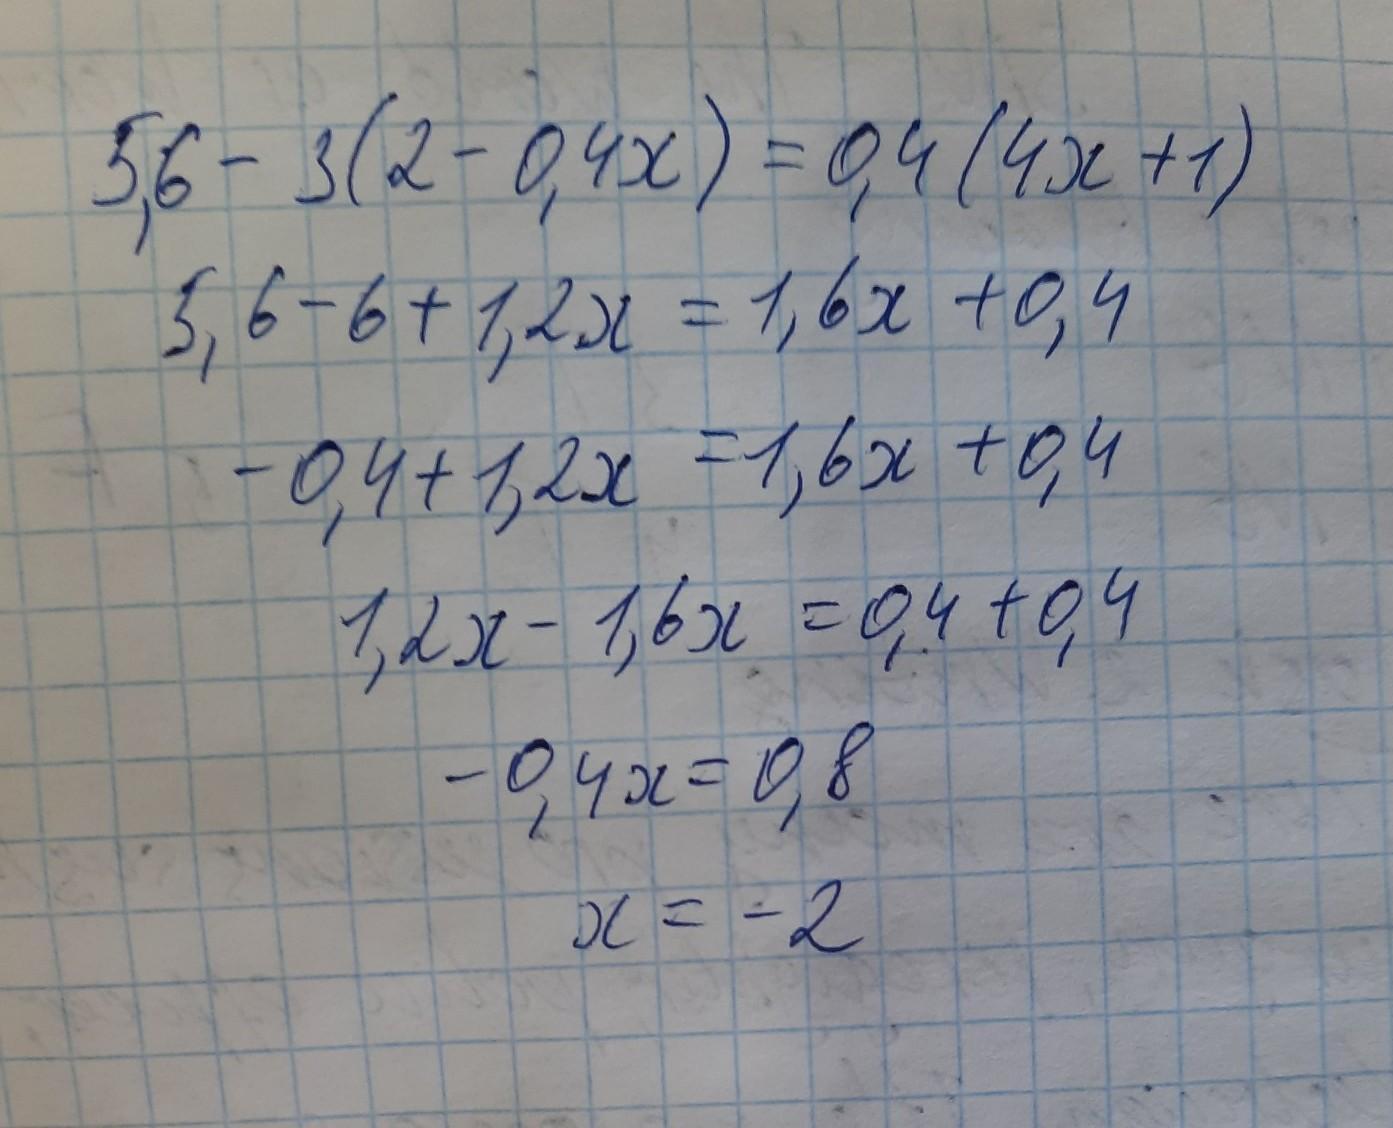 5,6 - 3(2 - 0,4x) = 0,4(4x + 1)
5,6 - 6 + 1,2x = 1,6x + 0,4
- 0,4 + 1,2x = 1,6x + 0,4
1,2x - 1,6x = 0,4 + 0,4
- 0,4x = 0,8
x = - 2